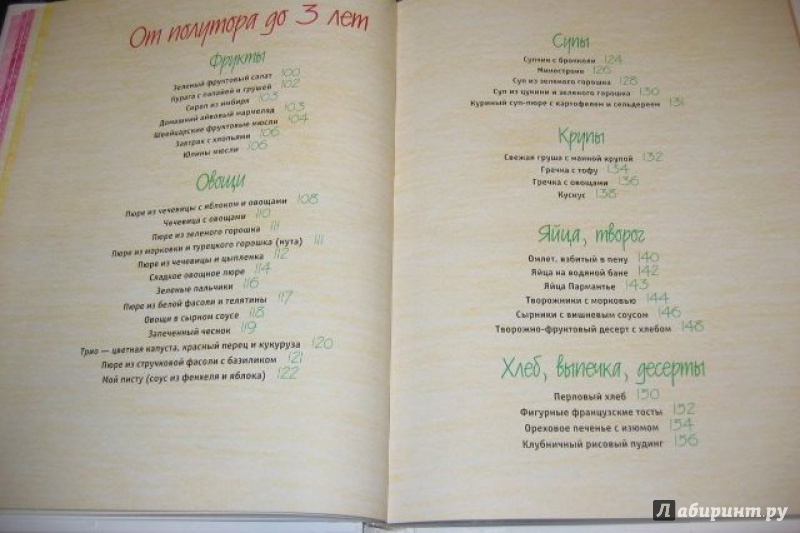 От полутора до 3 лет
Фрукты
Зеленый фруктовый салат 100
Курага с папайей и грушей 102
Сироп из имбиря 103
Домашний айвовый мармелад 103
Швейцарские фруктовые мюсли 104
Завтрак с хлопьями 106
Юлины мюсли 106
Овощи
Пюре из чечевицы с яблоком и овощами 108
Чечевица с овощами 110
Пюре из зеленого горошка 111
Пюре из морковки и турецкого горошка (нута) 111
Пюре из чечевицы и цыпленка 112
Сладкое овощное пюре 114
Зеленые пальчики 116
Пюре из белой фасоли и телятины 117
Овощи в сырном соусе 118
Запеченный чеснок 119
Трио — цветная капуста, красный перец и кукуруза 120
Пюре из стручковой фасоли с базиликом 121
Мой писту (соус из фенхеля и яблока) 122
Супы
Супчик с брокколи 124
Минестроне 126
Суп из зеленого горошка 128
Суп из цукини и зеленого горошка 130
Куриный суп-пюре с картофелем и сельдереем 131
Крупы
Свежая груша с манной крупой 132
Гречка с тофу 134
Гречка с овощами 136
Кускус 138
Яйца, творог
Омлет, взбитый в пену 140
Яйца на водяной бане 142
Яйца Пармантье 143
Творожники с морковью 144
Сырники с вишневым соусом 146
Творожно-фруктовый десерт с хлебом 148
Хлеб, выпечка, десерты
Перловый хлеб 150
Фигурные французские тосты 152
Ореховое печенье с изюмом 154
Клубничный рисовый пудинг 156
Лабиринт.ру